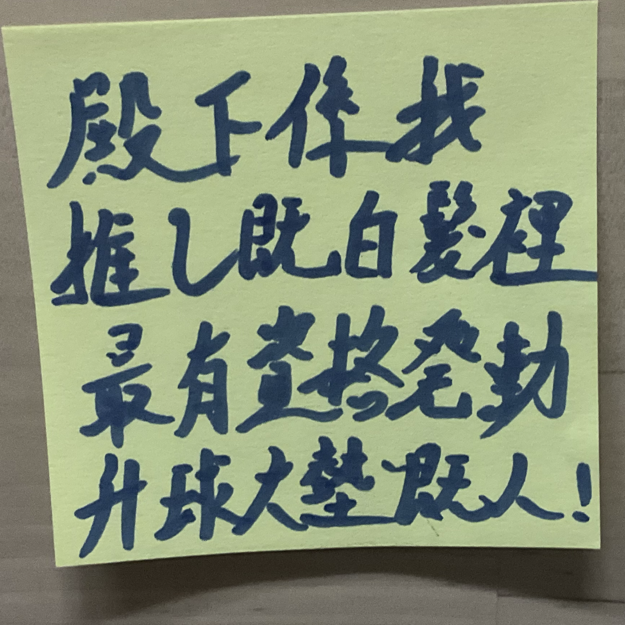 殿下係我
推し既白髮裡
最有資格発動
升球大墊既人！